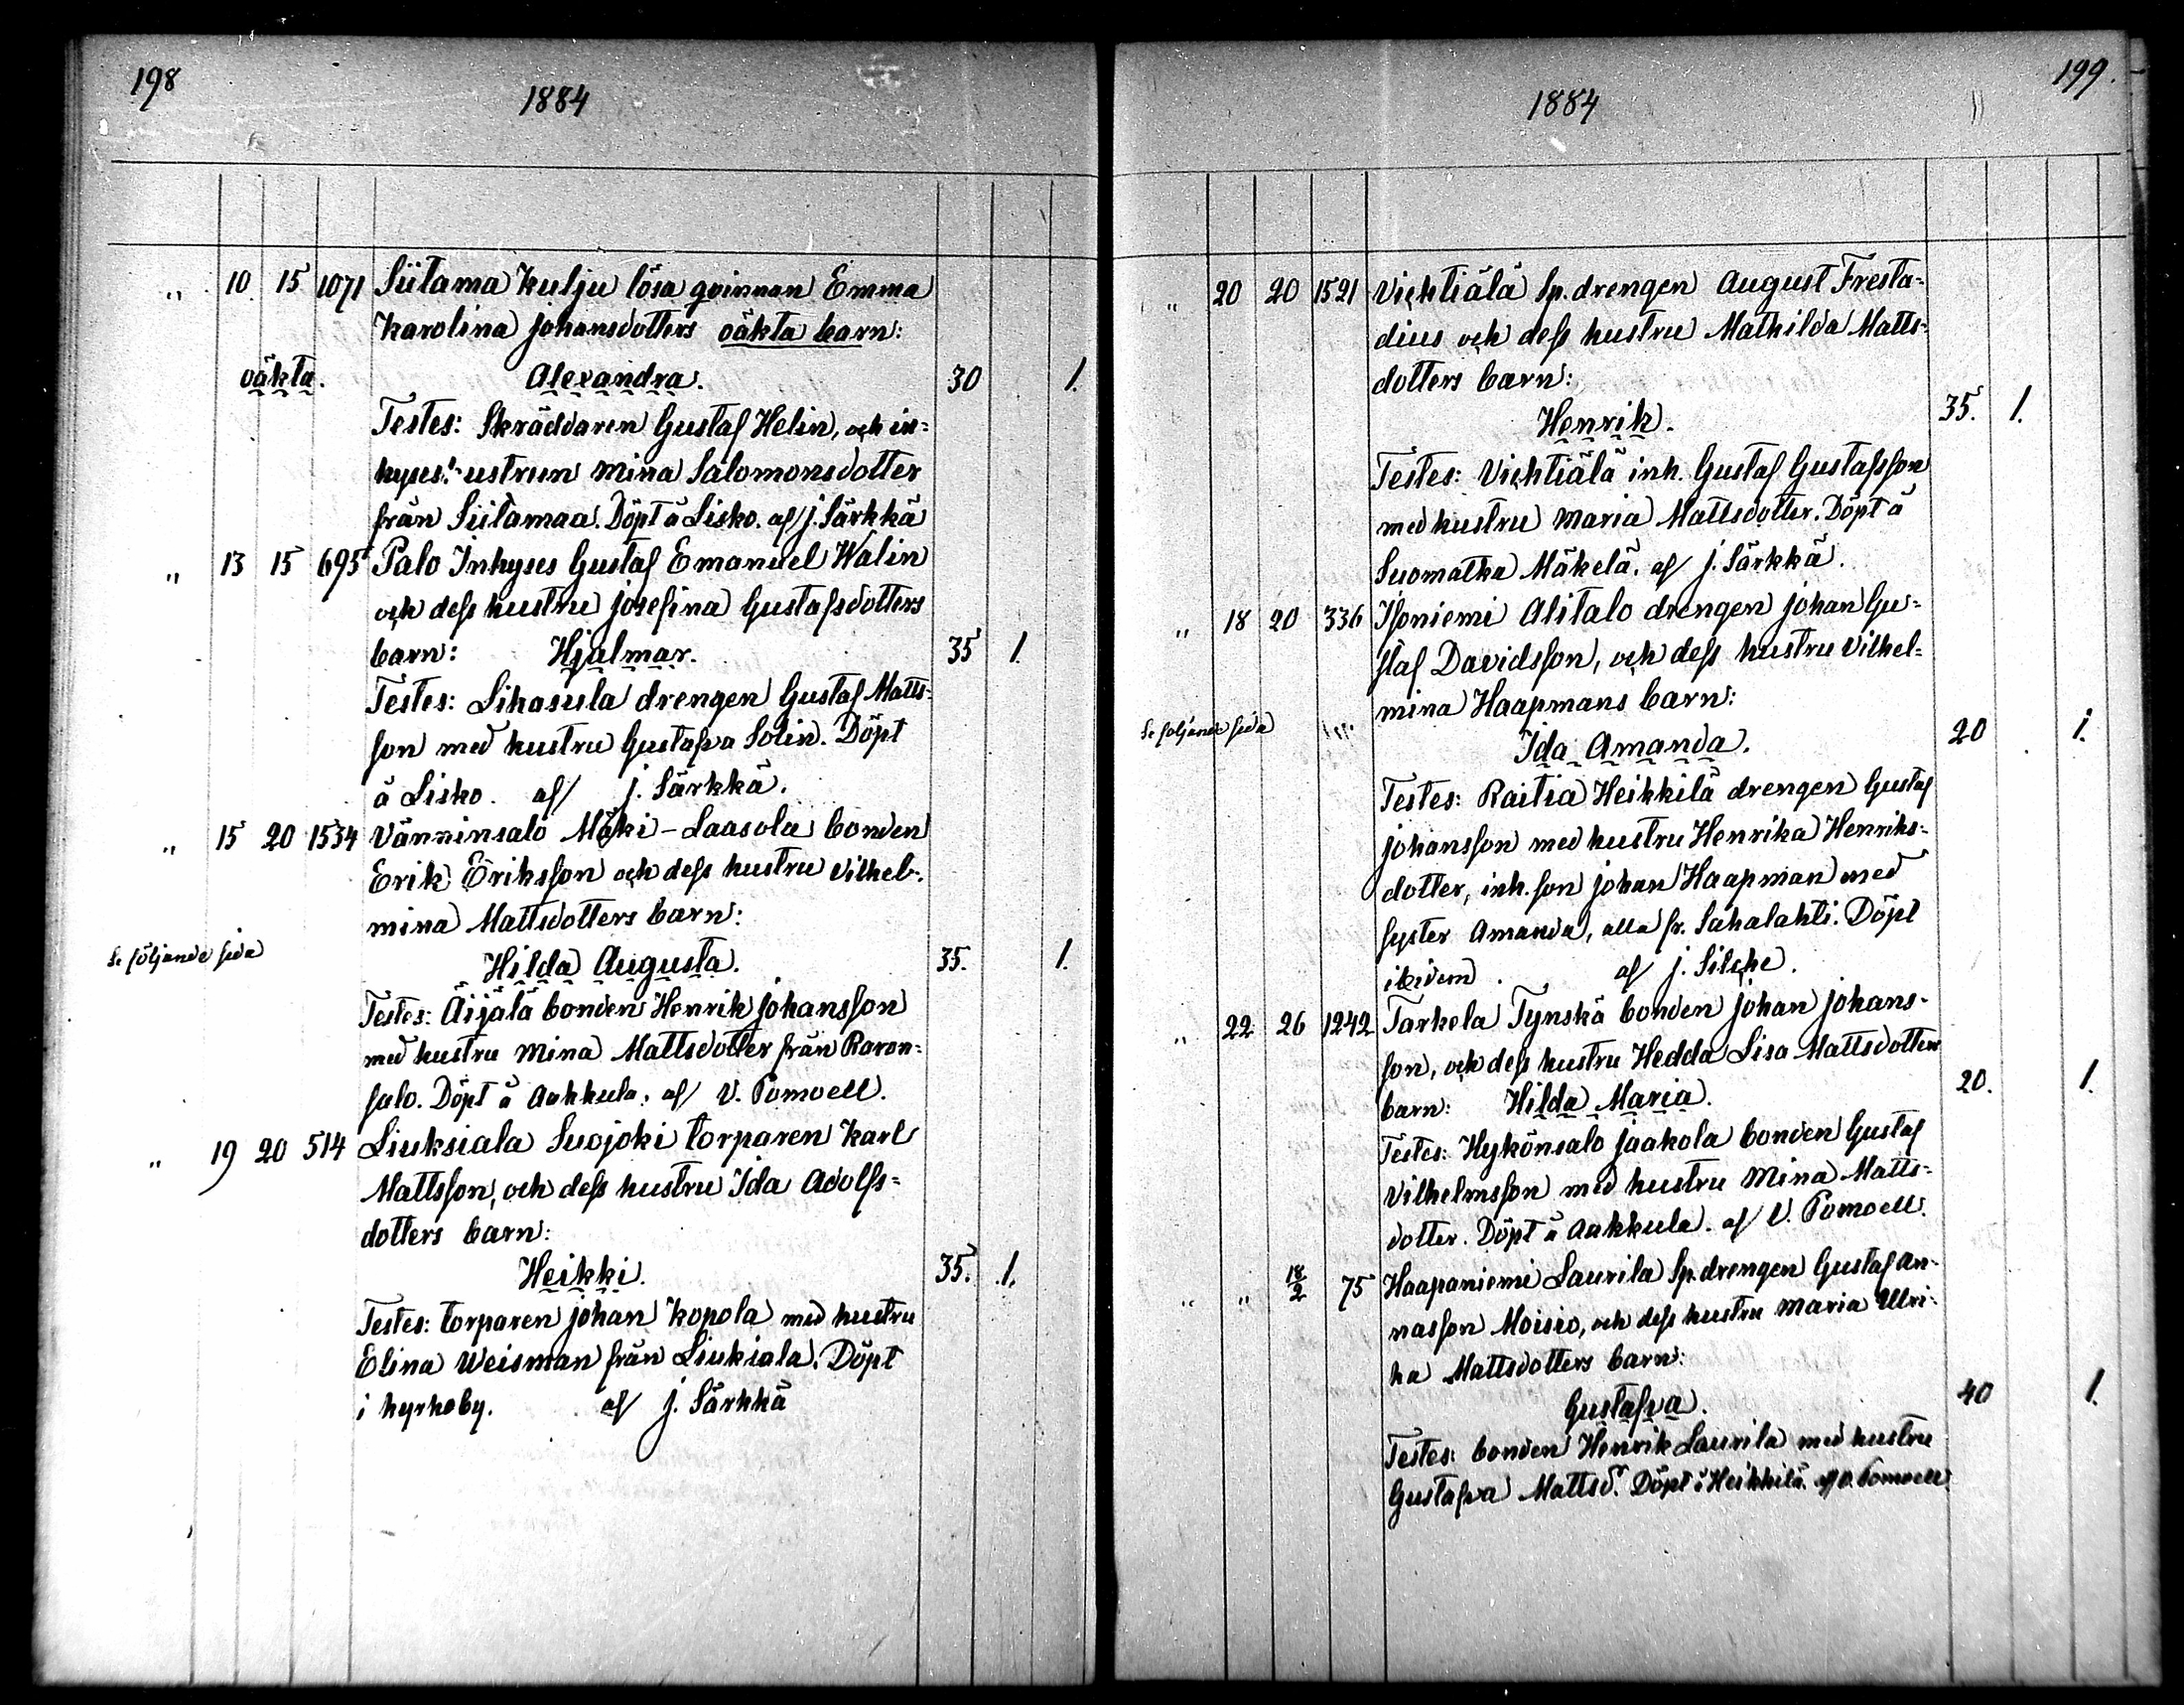 198
1884
" 10 15 1071 Siitama Kulju lösa qvinnan Emma
Karolina Johansdotters oäkta barn:
oäkta. Alexandra. 30 1.
Testes: Skräddaren Gustaf Helin, och in-
hyses hustrun Mina Salomonsdotter
från Siitamaa. Döpt å Lisko. af J. Särkkä
" 13 15 695 Palo Inhyses Gustaf Emanuel Walin
och dess hustru Josefina Gustafsdotters
barn: Hjalmar. 35 1.
Testes: Lihasula drengen Gustaf Matts-
son med hustru Gustafva Solin. Döpt
å Lisko. af J. Särkkä.
" 15 20 1534 Vänninsalo Mäki-Laasola bonden
Erik Eriksson och dess hustru Vilhel-
mina Mattsdotters barn:
Se följande sida Hilda Augusta. 35. 1.
Testes: Äijälä bonden Henrik Johansson
med hustru Mina Mattsdotter från Raron-
salo. Döpt å Aakkula. af V. Pomoell.
" 19 20 514 Liuksiala Suojoki torparen Karl
Mattsson, och dess hustru Ida Adolfs-
dotters barn:
Heikki. 35. 1.
Testes: torparen Johan Kopola med hustru
Elina Weisman från Liukiala. Döpt
i kyrkoby. af J. Särkkä
199.
1884
" 20 20 1521 Viehtiälä Sp. drengen August Fresta-
dius och dess hustru Mathilda Matts-
dotters barn:
Henrik. 35. 1.
Testes: Viehtiälä inh. Gustaf Gustafsson
med hustru Maria Mattsdotter. Döpt å
Suomatka Mäkelä. af J. Särkkä.
" 18 20 336 Isoniemi Alitalo drengen Johan Gu-
staf Davidsson, och dess hustru Vilhel-
mina Haapmans barn:
Se följande sida Ida Amanda. 20 1.
Testes: Raitia Heikkilä drengen Gustaf
Johansson med hustru Henrika Henriks-
dotter, inh. son Johan Haapman med
syster Amanda, alla fr. Sahalahti. Döpt
ibidem. af J. Silche.
" 22 26 1242 Tarkela Tynskä bonden Johan Johans-
son, och dess hustru Hedda Lisa Mattsdotters
barn: Hilda Maria. 20. 1.
Testes: Hykönsalo Jaakola bonden Gustaf
Vilhelmsson med hustru Mina Matts-
dotter. Döpt å Aakkula. af V. Pomoell.
" " 18/2 75 Haapaniemi Laurila Sp. drengen Gustaf An-
nasson Moisio, och dess hustru Maria Ulri-
ka Mattsdotters barn:
Gustafva. 40 1.
Testes: bonden Henrik Laurila med hustru
Gustafva Mattsd. Döpt å Heikkilä. af V. Pomoell